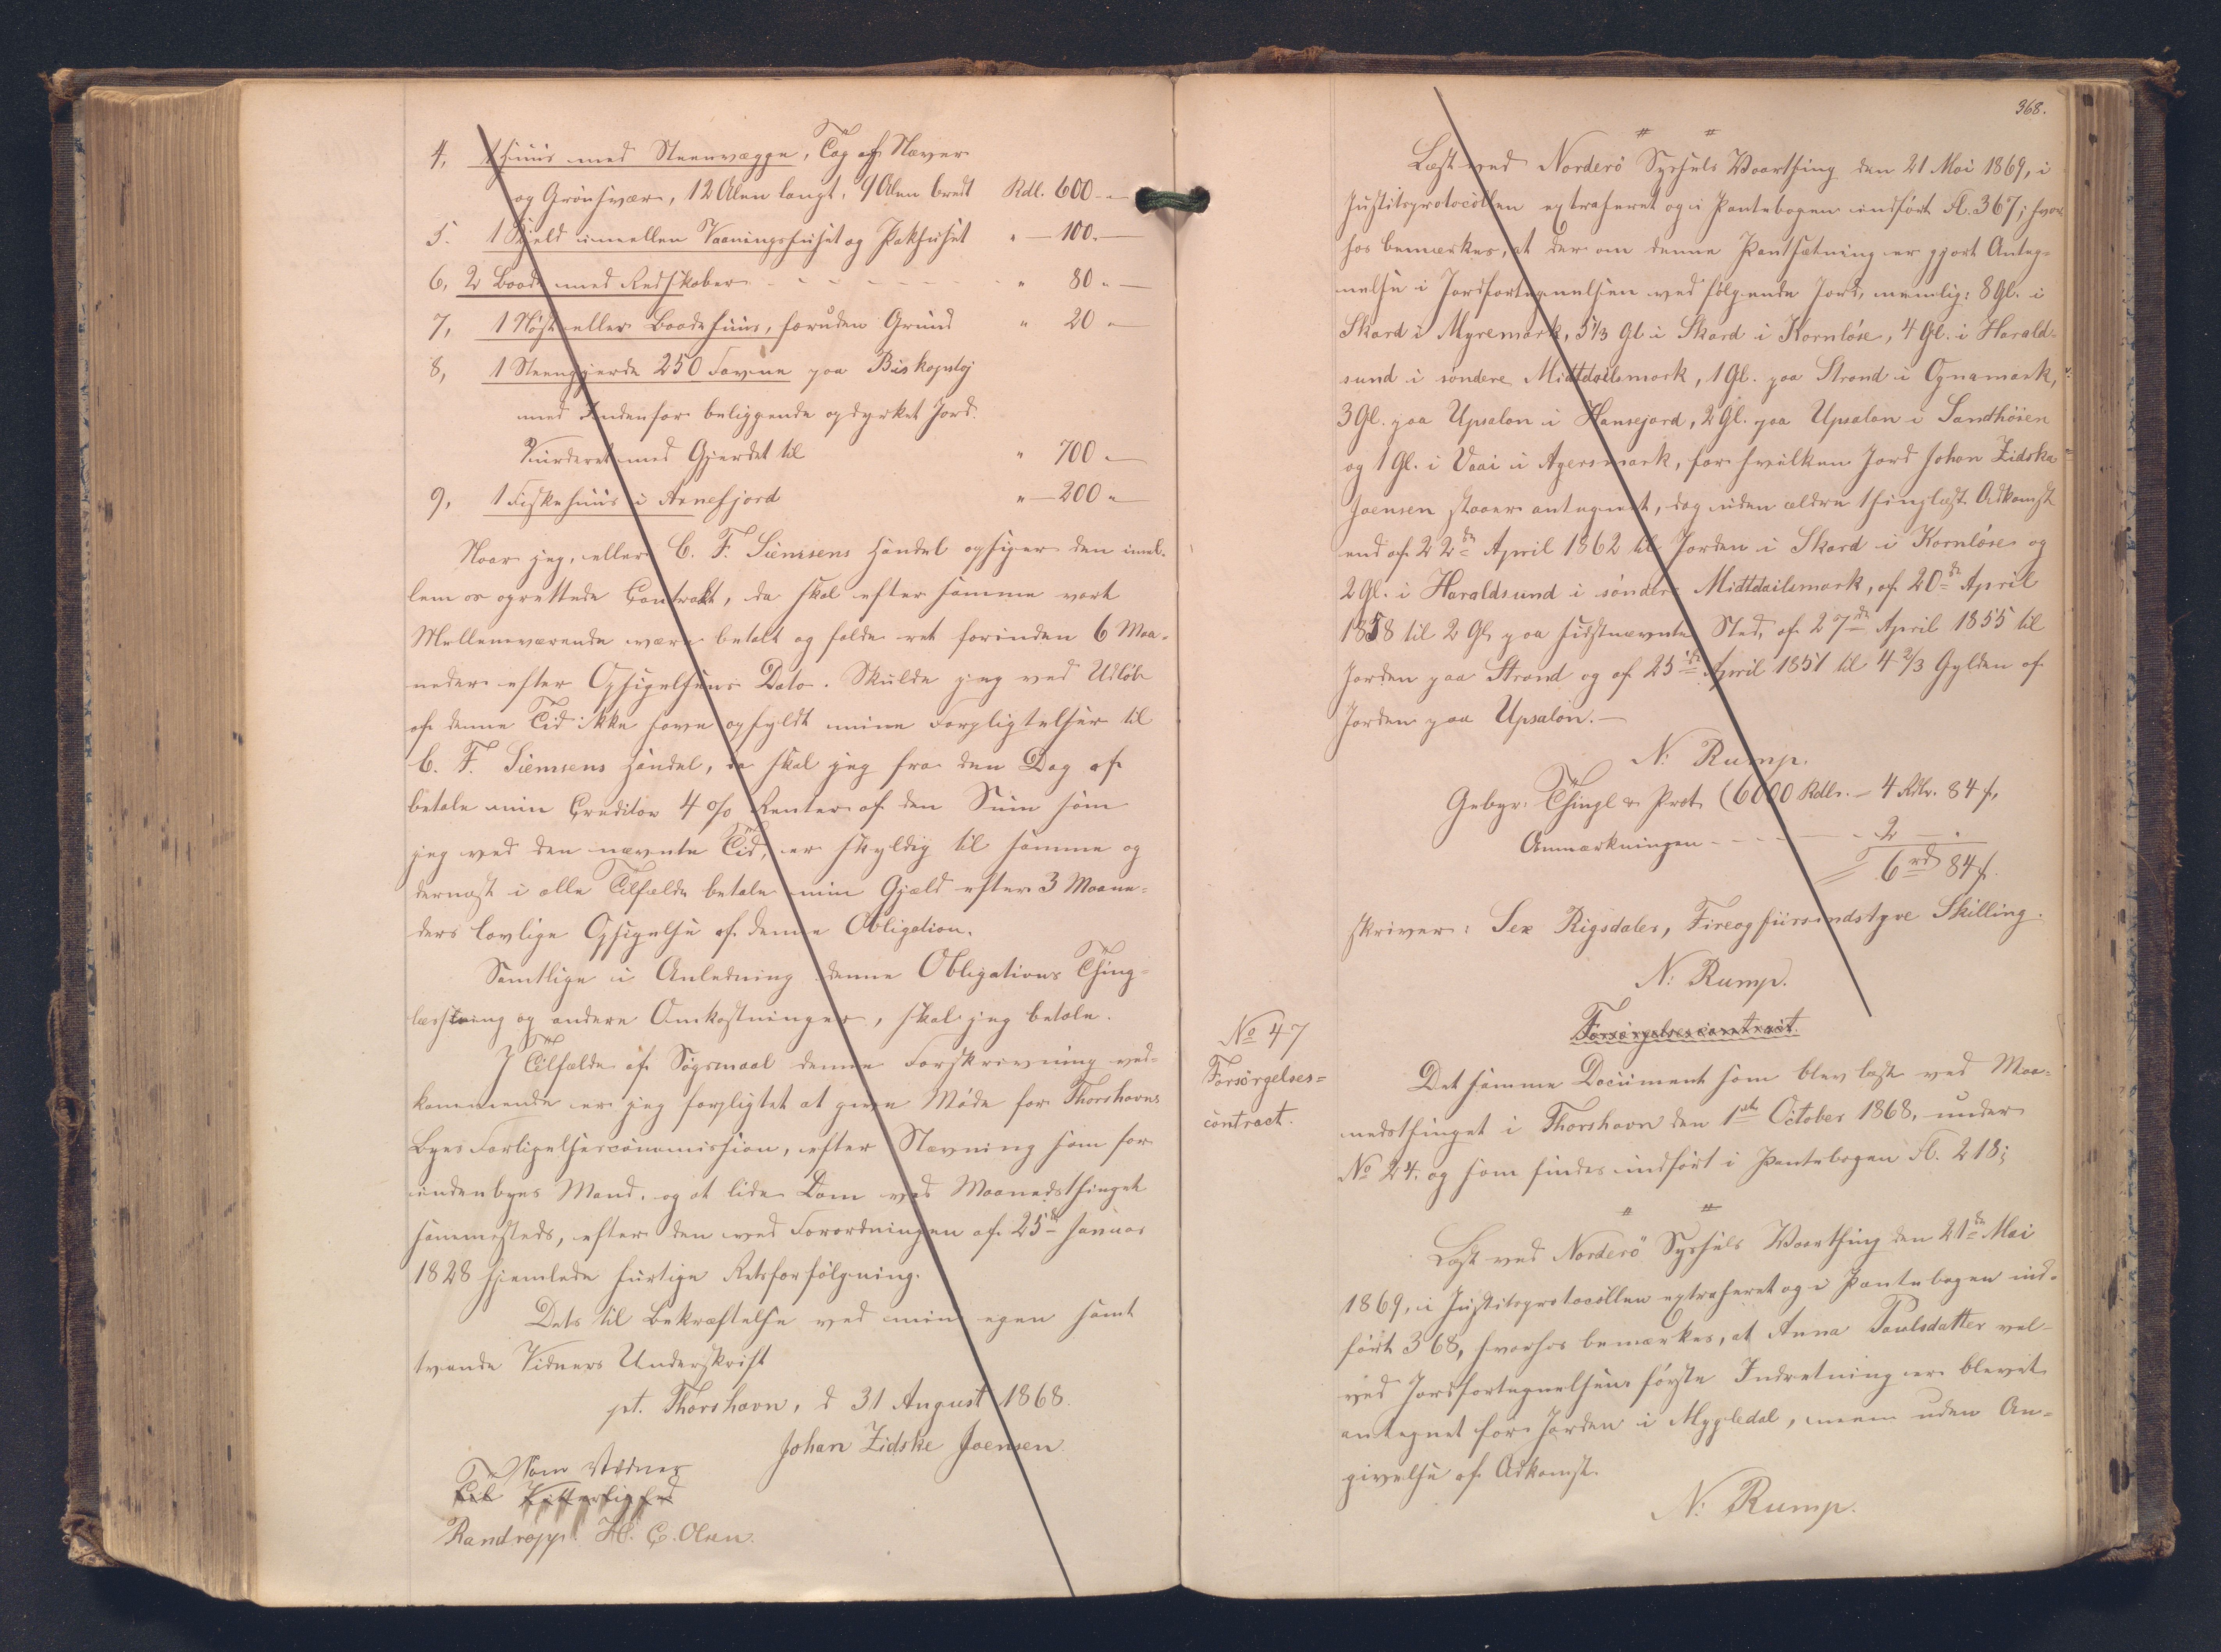 4, 1 Huus med Steenvægge, Tag af Næver
og Grönsvær, 12 Alen langt, 9 Alen bredt Rdl. 600 - "
5. 1 Kjeld imellem Vaaningshuset og Pakhuset " — 100. —
6, 2 Baade med Redskaber - - - - - " 80 " —
7, 1 Nöst eller Baadehuus, foruden Grund " 20 " —
8, 1 Steengjerde 250 Favne paa Biskopstöj
med Indenfor beliggende opdyrket Jord.
Vurderet med Gjerdet til " 700 " —
9, 1 Fiskehuus i Arnefjord " — 200 " —
Naar jeg, eller C. F. Siemsens Handel opsiger den imel-
lem os oprettede Contrakt, da skal efter samme vort
Mellemværende være betalt og holde ret forinden 6 Maa-
neder efter Opsigelsens Dato. Skulde jeg ved Udlöb
af denne Tid ikke have opfyldt mine Forpligtelser til
C. F. Siemsens Handel, da skal jeg fra den Dag af
betale min Creditor 4 o/o Renter af den Sum som
jeg ved den nævnte Tid, er skyldig til samme og
dernæst i alle Tilfælde betale min Gjæld efter 3 Maane-
ders lovlige Opsigelse af denne Obligation.
Samtlige i Anledning denne Obligations Thing-
læsning og andere Omkostninger, skal jeg betale.
I Tilfælde af Sögsmaal denne Forskrivning ved-
kommende er jeg forpligtet at give Möde for Thorshavns
Byes Forligelsescommission, efter Stævning som for
indenbyes Mand, og at lide Dom ved Maanedsthinget
sammesteds, efter den ved Forordningen af 25de Januar
1828 hjemlede hurtige Retsforfölgning.
Dets til Bekræftelse ved min egen samt
tvende Vidners Underskrift
pt. Thorshavn, d 31 August 1868.
Johan Zidske Joensen
Som Vidner
Til Vitterlighed
Randropp. H. C. Olsen.
368.
Læst ved Norderö Syssels Vaarthing den 21 Mai 1869, i
Justitsprotocollen extraheret og i Pantebogen indfört Fl. 367; hvor-
hos bemærkes, at der om denne Pantsætning er gjort Anteg-
nelse i Jordfortegnelsen ved fölgende Jord, nemlig: 8 Gl. i
Skard i Myremark, 5 1/3 Gl. i Skard i Kornlöse, 4 Gl. i Harald-
sund i söndere Midtdailsmark, 1 Gl. paa Strond i Ognamark,
3 Gl. paa Upsalon i Hansejord, 2 Gl. paa Upsalon i Sandhöien
og 1 Gl. i Vaai i Agersmark, for hvilken Jord Johan Zidske
Joensen staaer antegnet, dog uden ældre thinglæst Adkomst
end af 22de April 1862 til Jorden i Skard i Kornlöse og
2 Gl. i Haraldsund i söndere Midtdailsmark, af 20de April
1858 til 2 Gl. paa sidstnævnte Sted, af 27de April 1855 til
Jorden paa Strond og af 25de April 1851 til 4 2/3 Gylden af
Jorden paa Upsalon. —
N: Rump.
Gebyr: Thingl & Prot. (6000 Rdlr. — 4 Rdlr. 84 s,
Anmærkningen - - - 2 — .
6 rd 84 s.
skriver: Sex Rigsdaler, Fireogfiirsindstyve Skilling.
N: Rump.
Forsörgelsescontract.
No 47
Forsörgelses=
contract.
Det samme Document som blev læst ved Maa-
nedsthinget i Thorshavn den 1ste October 1868, under
No 24. og som findes indfört i Pantebogen Fl. 218;
Læst ved Norderö Syssels Vaarthing den 21de Mai
1869, i Justitsprotocollen extraheret og i Pantebogen ind-
fört 368, hvorhos bemærkes, at Anna Poulsdatter vel
ved Jordfortegnelsens förste Indretning er blevet
antegnet for Jorden i Mygledal, men uden An-
givelse af Adkomst.
N: Rump.